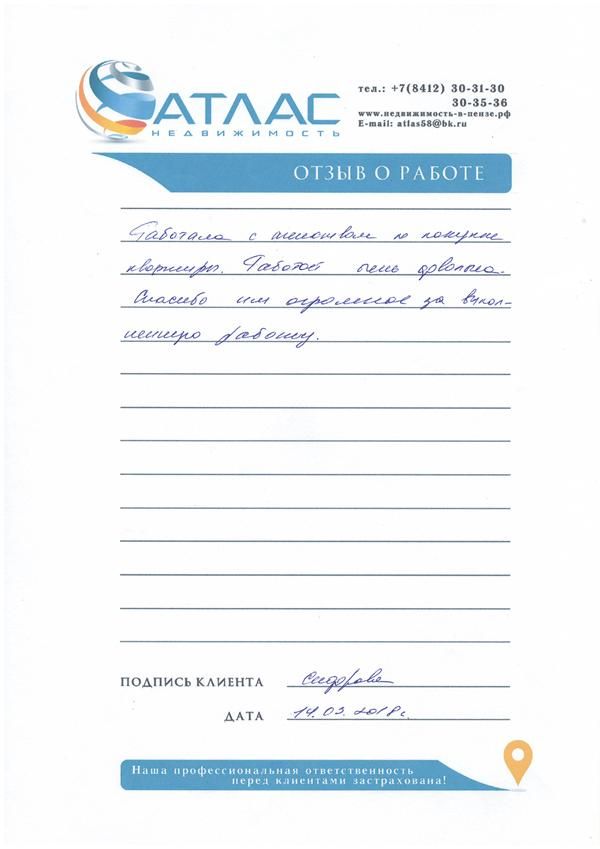 АТЛАС
НЕДВИЖИМОСТЬ
тел.: +7(8412) 30-31-30
30-35-36
www.недвижимость-в-пензе.рф
E-mail: atlas58@bk.ru
ОТЗЫВ О РАБОТЕ
Работала с агентством по покупке
квартиры. Работой очень довольна.
Спасибо им огромное за выпол-
ненную работу.
ПОДПИСЬ КЛИЕНТА Сидорова
ДАТА 14.03.2018г.
Наша профессиональная ответственность
перед клиентами застрахована!